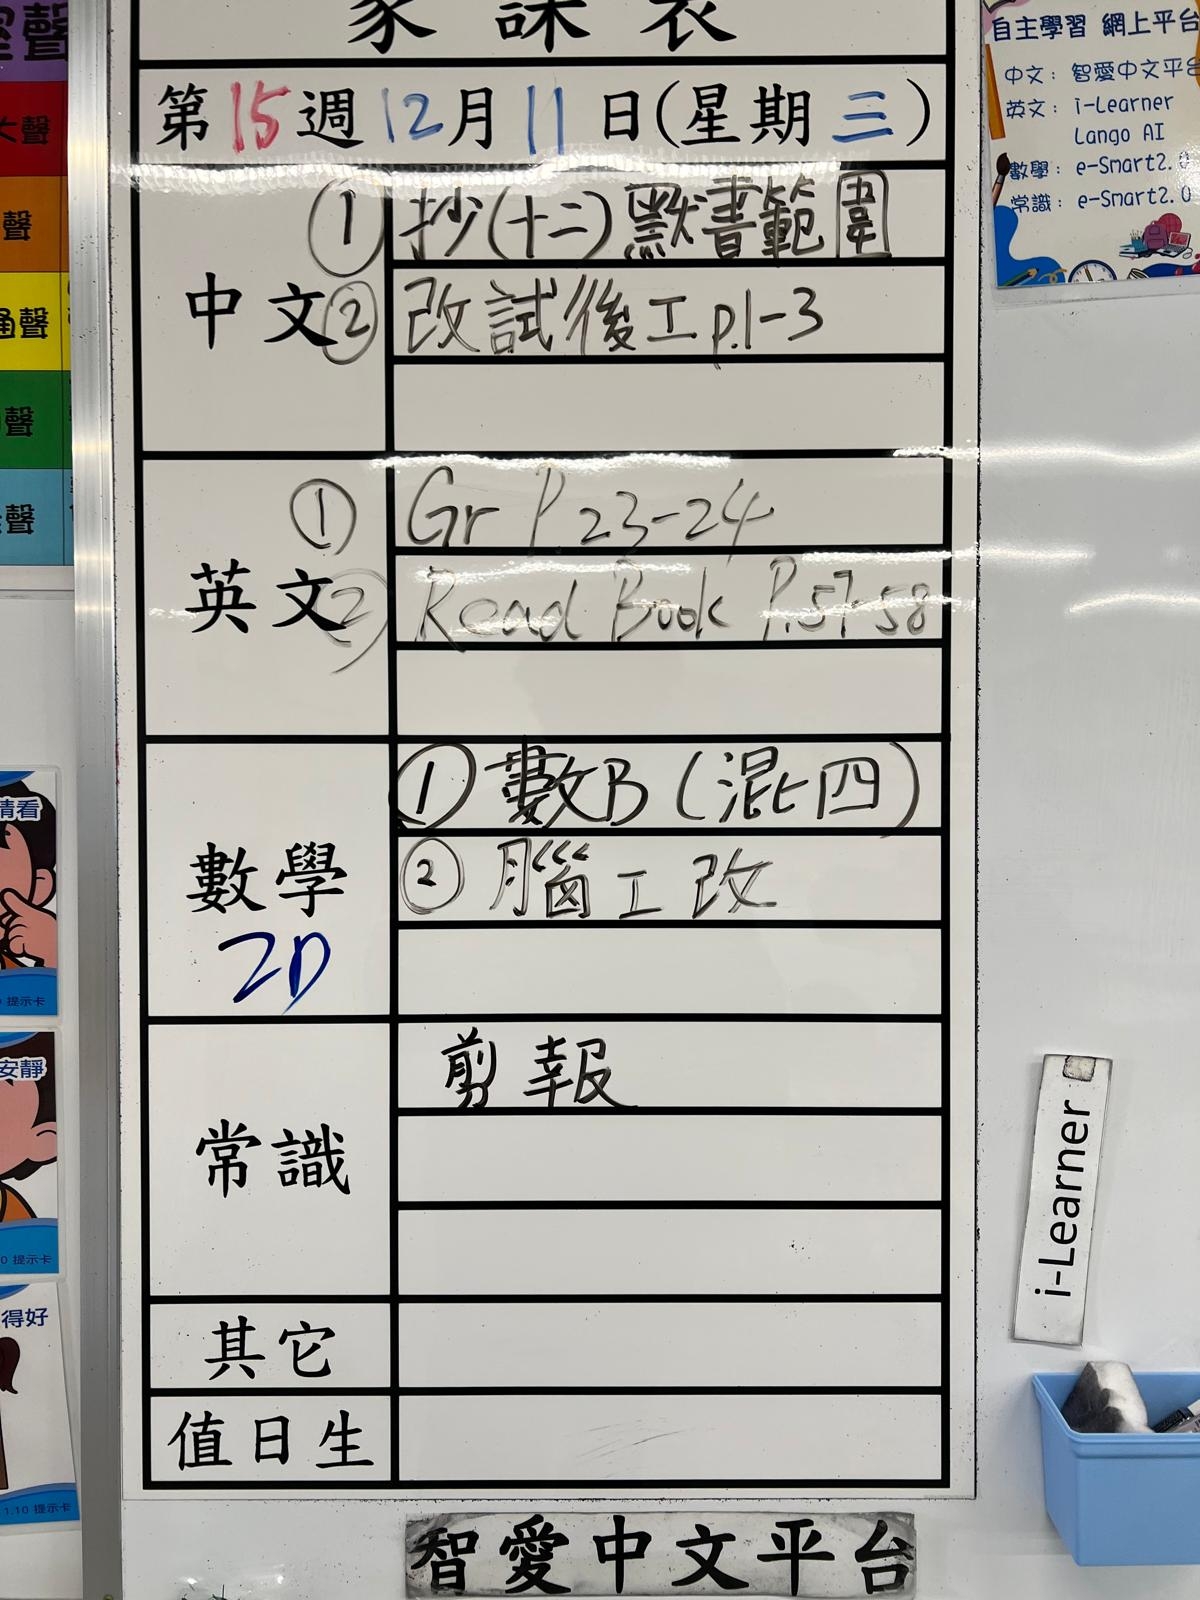 家課表
第15週12月11日(星期三)
中文
① 抄(十二)默書範圍
② 改試後工p.1-3
英文
① Gr P.23-24
② Read Book P.57-58
數學
2D
① 數B(混四)
② 腦工改
常識
剪報
其它
值日生
智愛中文平台
自主學習 網上平台
中文: 智愛中文平台
英文: i-Learner
Lango AI
數學: e-Smart2.0
常識: e-Smart2.0
i-Learner
大聲
聲
通聲
聲
聲
請看
提示卡
安靜
提示卡
得好
1.10 提示卡